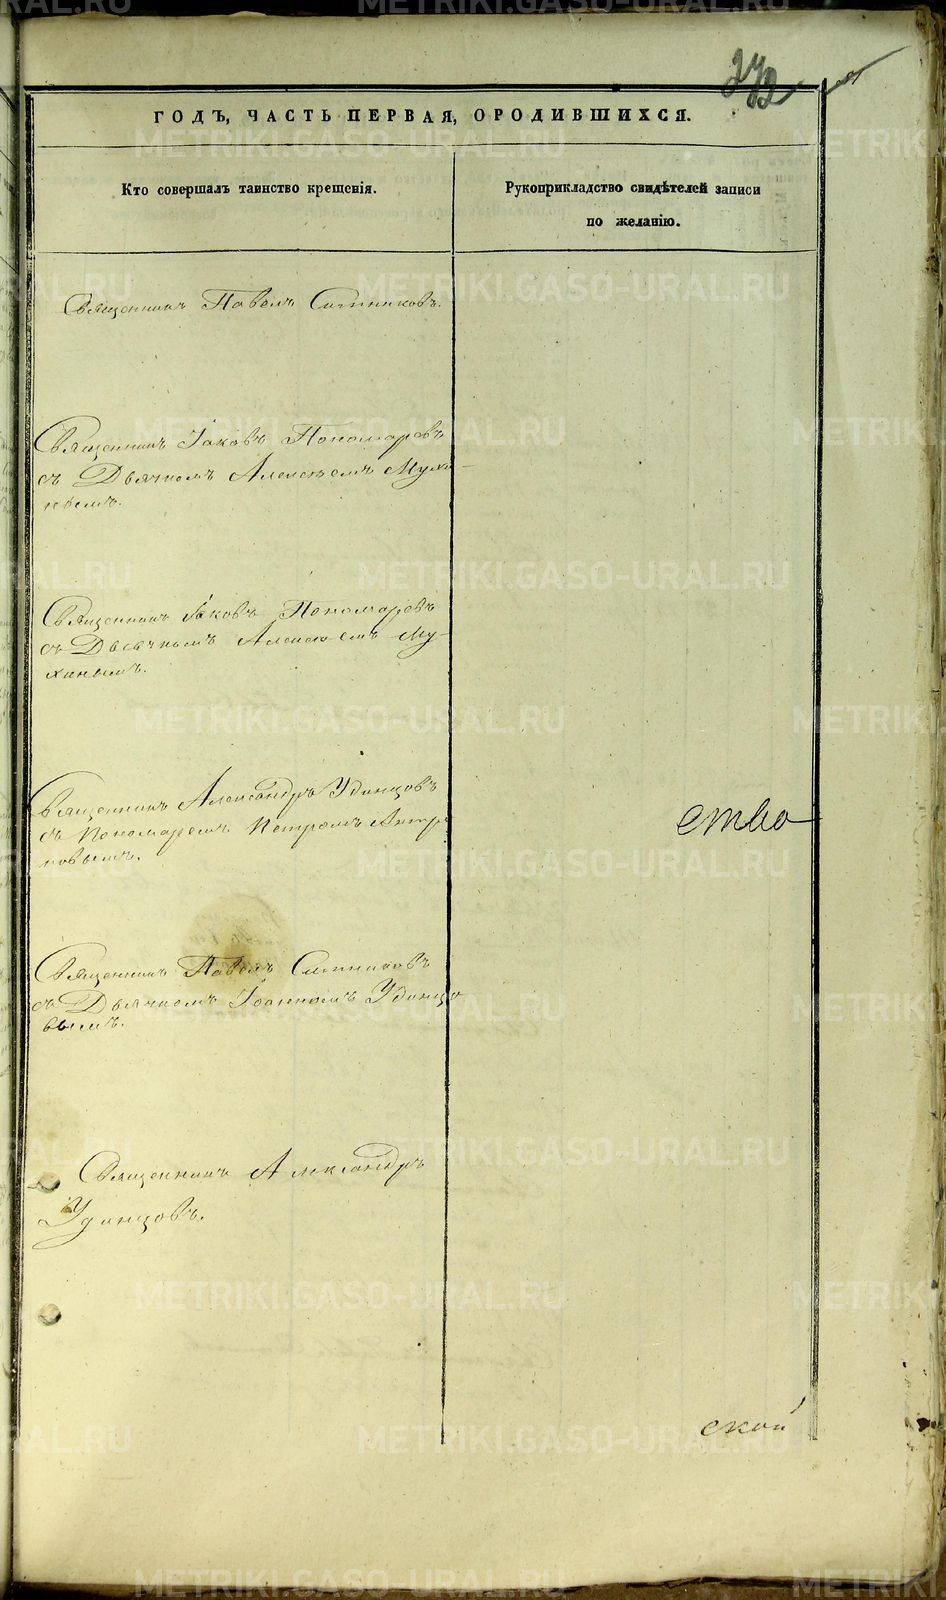 ГОДЪ, ЧАСТЬ ПЕРВАЯ, О РОДИВШИХСЯ.
Кто совершалъ таинство крещенія.
Рукоприкладство свидѣтелей записи
по желанію.
Священникъ Павелъ Ситниковъ.
Священникъ Іаковъ Пономаревъ
съ Дьячкомъ Алексѣемъ Мухи-
нымъ.
Священникъ Іаковъ Пономаревъ
съ Дьячкомъ Алексѣемъ Му-
хинымъ.
Священникъ Александръ Удинцовъ
съ Пономаремъ Петромъ
новымъ.
ство
Священникъ Павелъ Ситниковъ
съ Дьячкомъ Іоанномъ Удинцо
вымъ.
Священникъ Александръ
Удинцовъ.
ской
METRIKI.GASO-URAL.RU